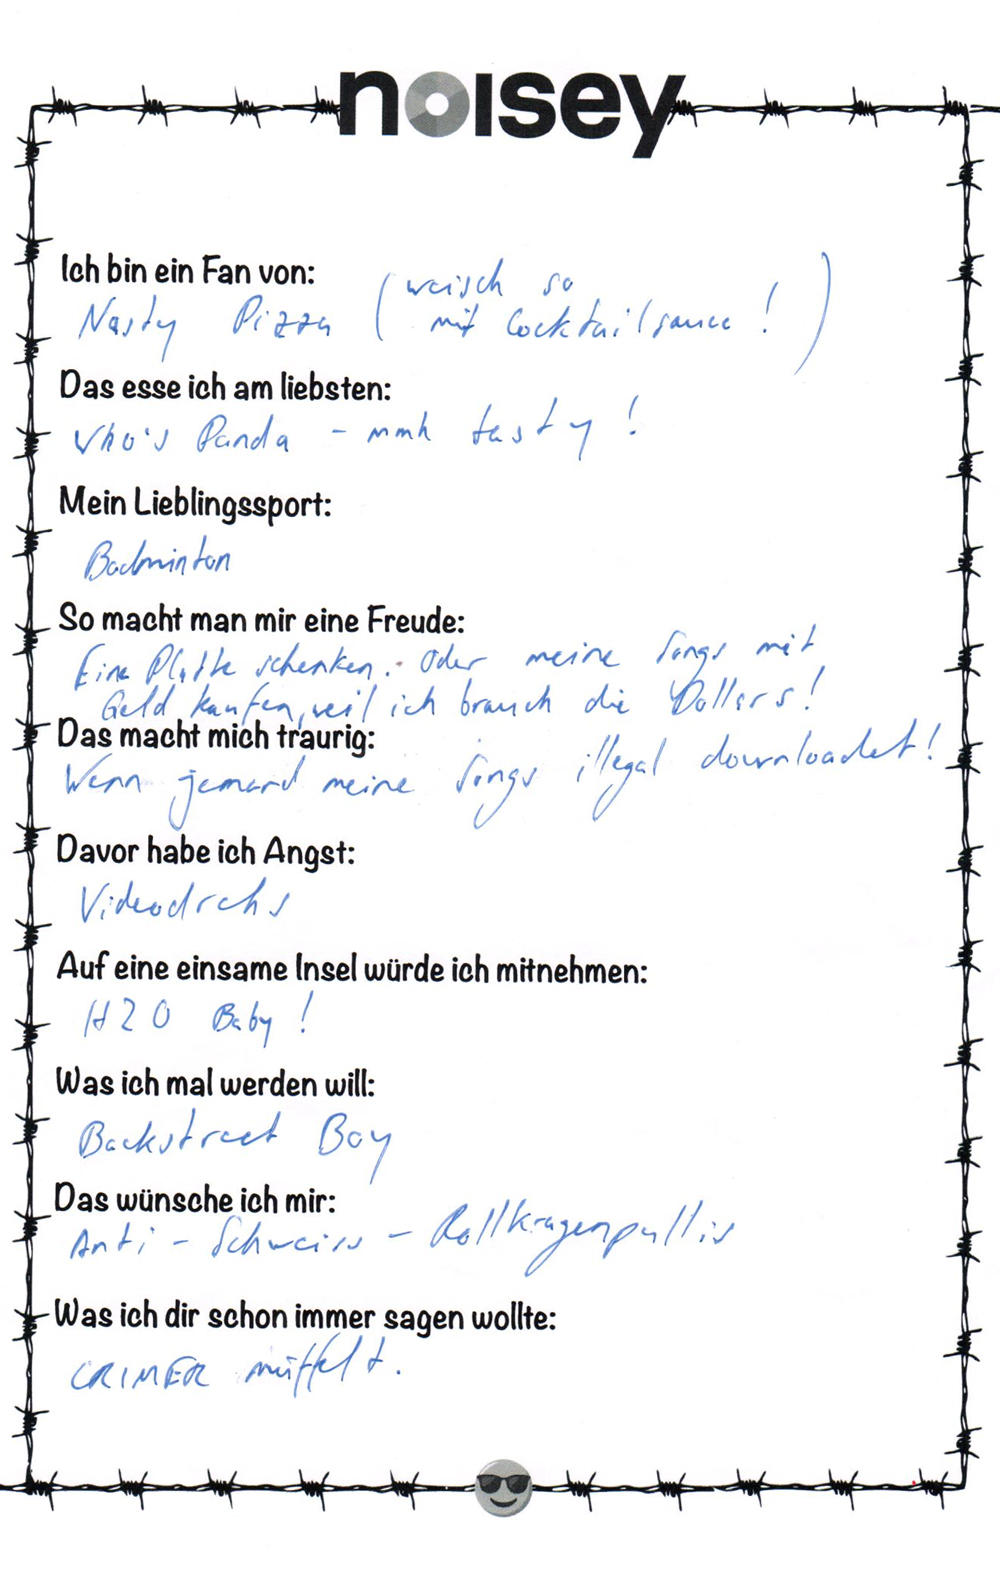 noisey
Ich bin ein Fan von:
Nasty Pizza (weisch so
mit Cocktailsauce!)
Das esse ich am liebsten:
Who's Panda - mmh tasty!
Mein Lieblingssport:
Badminton
So macht man mir eine Freude:
Eine Platte schenken. Oder meine Songs mit
Geld kaufen, weil ich brauch die Dollars!
Das macht mich traurig:
Wenn jemand meine Songs illegal downloadet!
Davor habe ich Angst:
Videodrehs
Auf eine einsame Insel würde ich mitnehmen:
H2O Baby!
Was ich mal werden will:
Backstreet Boy
Das wünsche ich mir:
Anti-Schweiss-Rollkragenpullis
Was ich dir schon immer sagen wollte:
CRIMER müffelt.